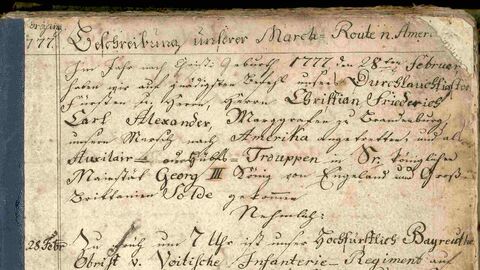 Beschreibung unserer March-Route n. Amer
1777.
Im Jahr nach Christi Geburth 1777 den 28ten Februar
haben wir auf gnädigsten Befehl unsers Durchlauchtigsten
Fürsten u. Herrn, Herrn Christian Friederich
Carl Alexander, Marggrafen zu Brandenburg
unsern Marsch nach Amerika angetretten, und als
Auxiliair- Trouppen in Sr. Königlichen
Maiestät Georg III König von Engeland und Groß
Brittanien Solde gekommen
Nehmlich:
28 Febr. Zu früh um 7 Uhr ist unser Hochfürstlich Bayreuth
Obrist v. Voitische Infanterie-Regiment aus